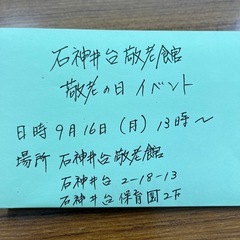 石神井台敬老館
敬老の日 イベント
日時 9月16日(月) 13時〜
場所 石神井台敬老館
石神井台 2-18-13
石神井台保育園2F